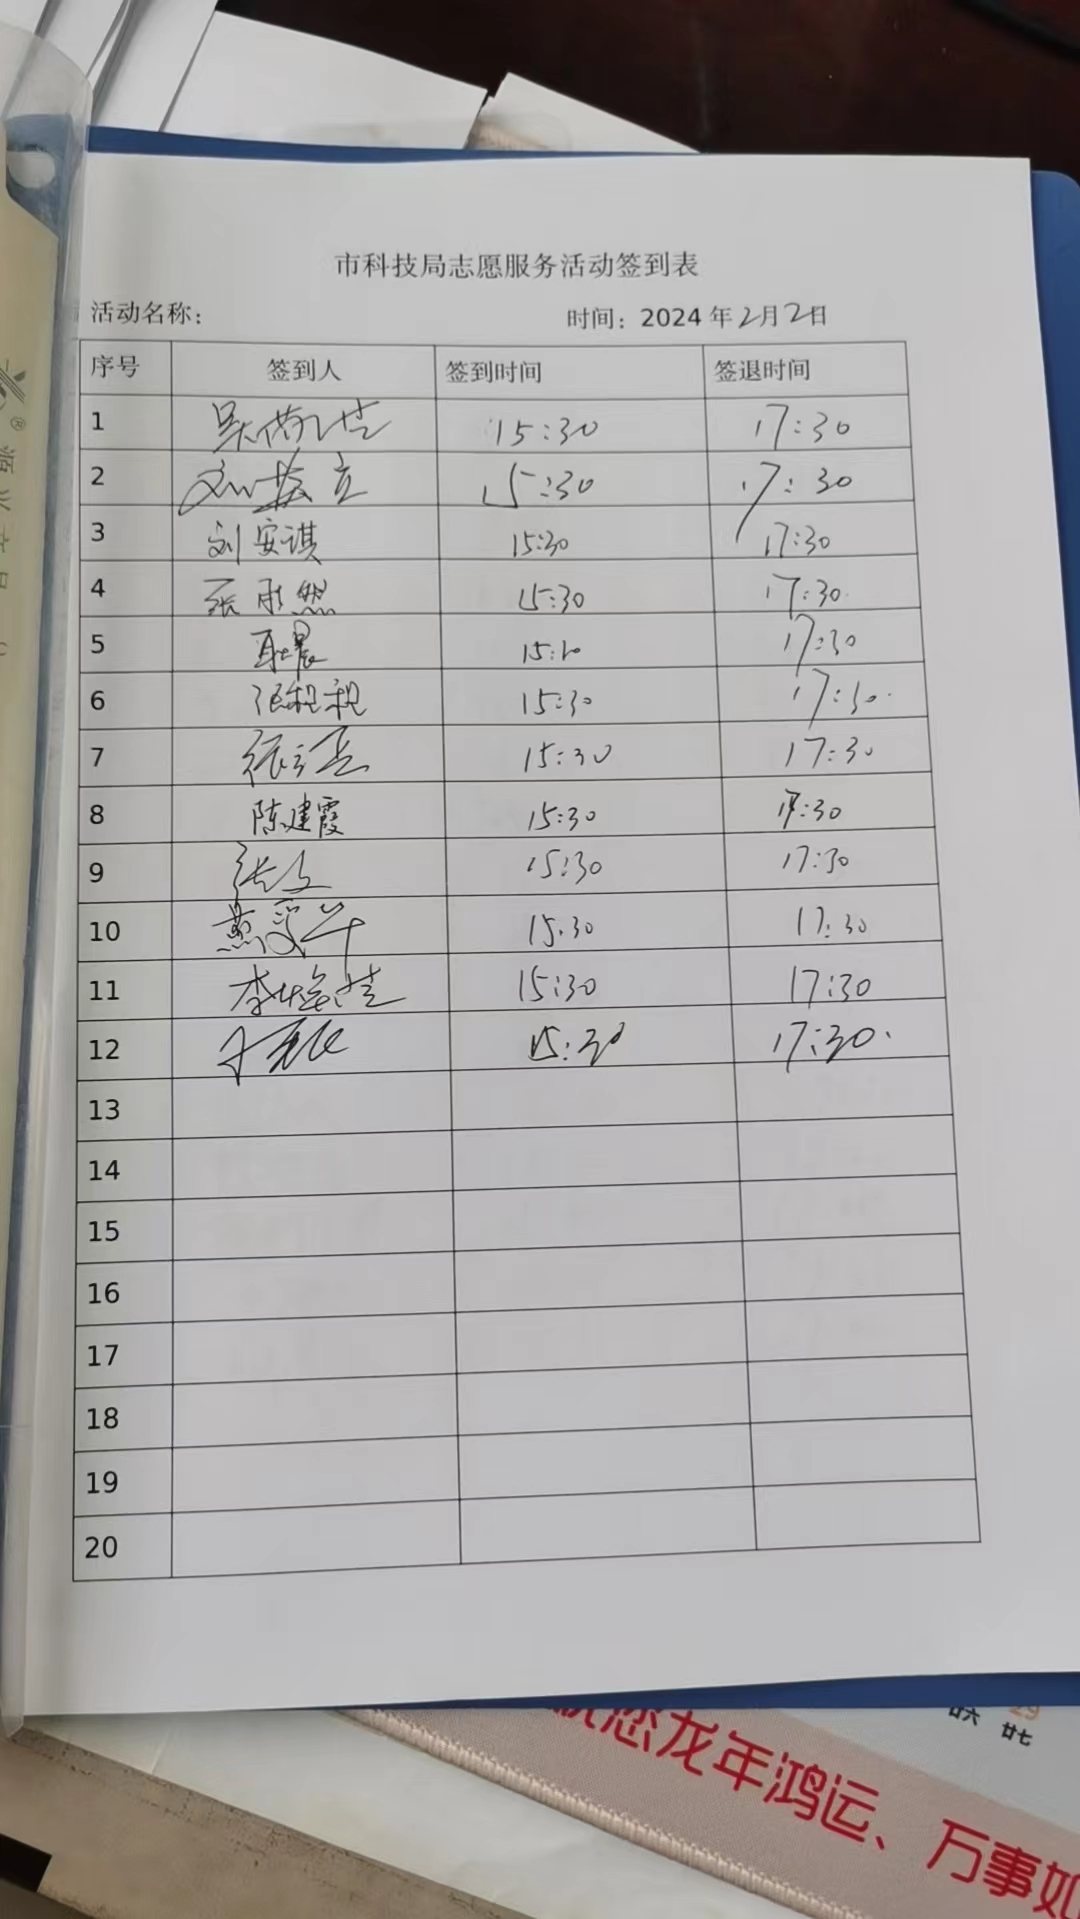 市科技局志愿服务活动签到表
活动名称: 时间: 2024 年 2月 2日
序号 签到人 签到时间 签退时间
1 15:30 17:30
2 15:30 17:30
3 刘安琪 15:30 17:30
4 张 然 15:30 17:30
5 耿晨 17:30
6 15:30 17:30
7 15:30 17:30
8 陈建霞 15:30 17:30
9 15:30 17:30
10 15:30 17:30
11 李 15:30 17:30
12 15:30 17:30
13
14
15
16
17
18
19
20
29
廿六 廿七
祝您龙年鸿运、万事如